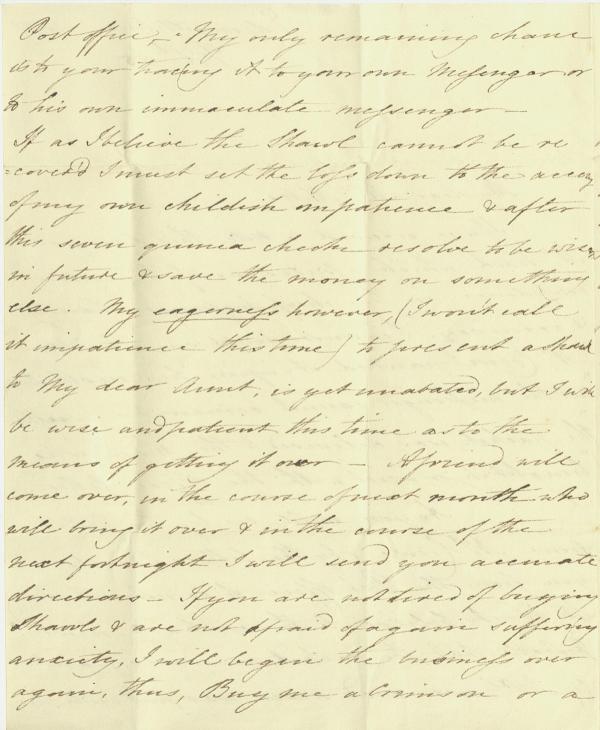 Post office, - My only remaining chance
is to your tracing it to your own Messenger or
to his own immaculate messenger -
If as I believe the Shawl cannot be re
=cover'd I must set the loss down to the
of my own childish impatience & after
this seven guinea cheche resolve to be wiser
in future & save the money on something
else. My eagerness however, (I won't call
it impatience this time) to present a Shawl
to My dear Aunt, is yet unabated, but I will
be wise and patient this time as to the
means of getting it over - A friend will
come over, in the course of next month who
will bring it over & in the course of the
next fortnight I will send you accurate
directions - If you are not tired of buying
Shawls & are not afraid of again suffering
anxiety, I will begin the business over
again, thus, Buy me a Crimson or a